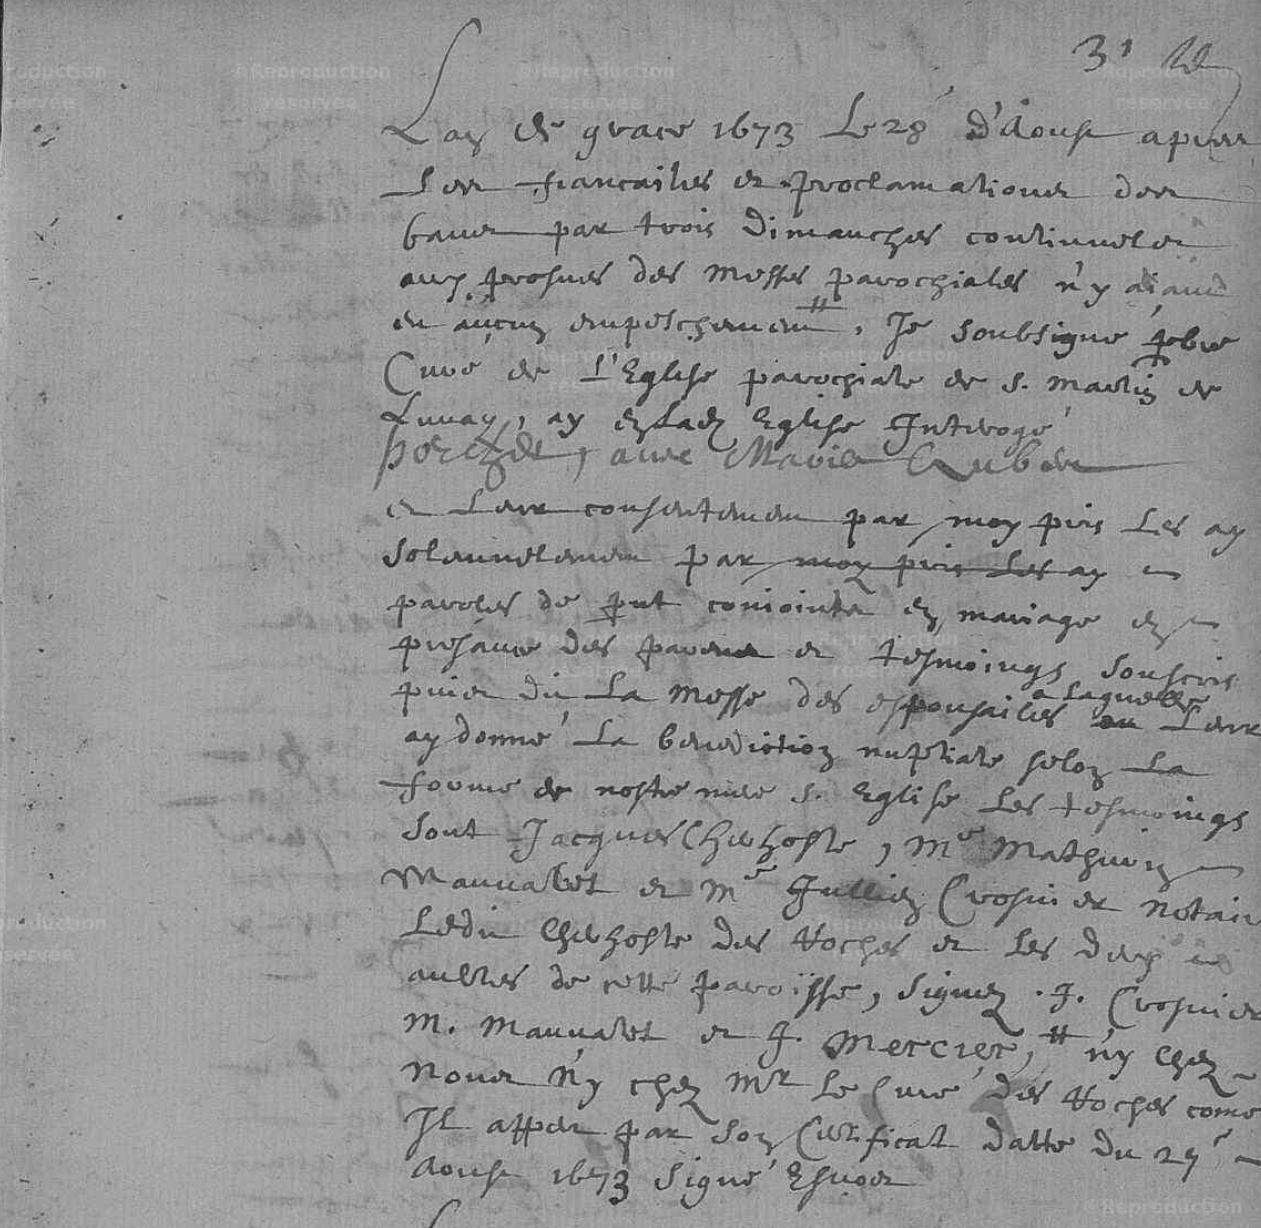 3'
Lan de grace 1673 Le 28 d'Aoust apres
Les fiancailles et proclamations des
bans par trois dimanches continuels
aux prosnes des Messes parochiales n'y aiant
eu aucun empeschement #, Je soubsigne pbre
Curé de L'Eglise parochiale de S. Martin de
Lunay, ay en Lad Eglise Introgé
avec Marie
et Leur consentement par moy pris Les ay
solennelement par moy pris Les ay
paroles de put conioints en mariage en
presance des parens et tesmoings souscris
puis dit La Messe des espousailles a Laquelle Leur
ay donné La benediction nuptiale selon La
forme de nostre mere S. Eglise Les tesmoings
sont Jacques Cherhoste, Me Mathurin
Mauvalet et Me Jullien Crosnier notaire
Ledit Cherhoste des Roches et Les deux
aultres de cette paroisse, signez . J. Crosnier
M. Mauvalet et J. Mercier, # n'y chez
Nous n'y chez Mr Le Curé des Roches come
Il appert par son Certificat datté du 27e
Aoust 1673 signé
© Reproduction réservée